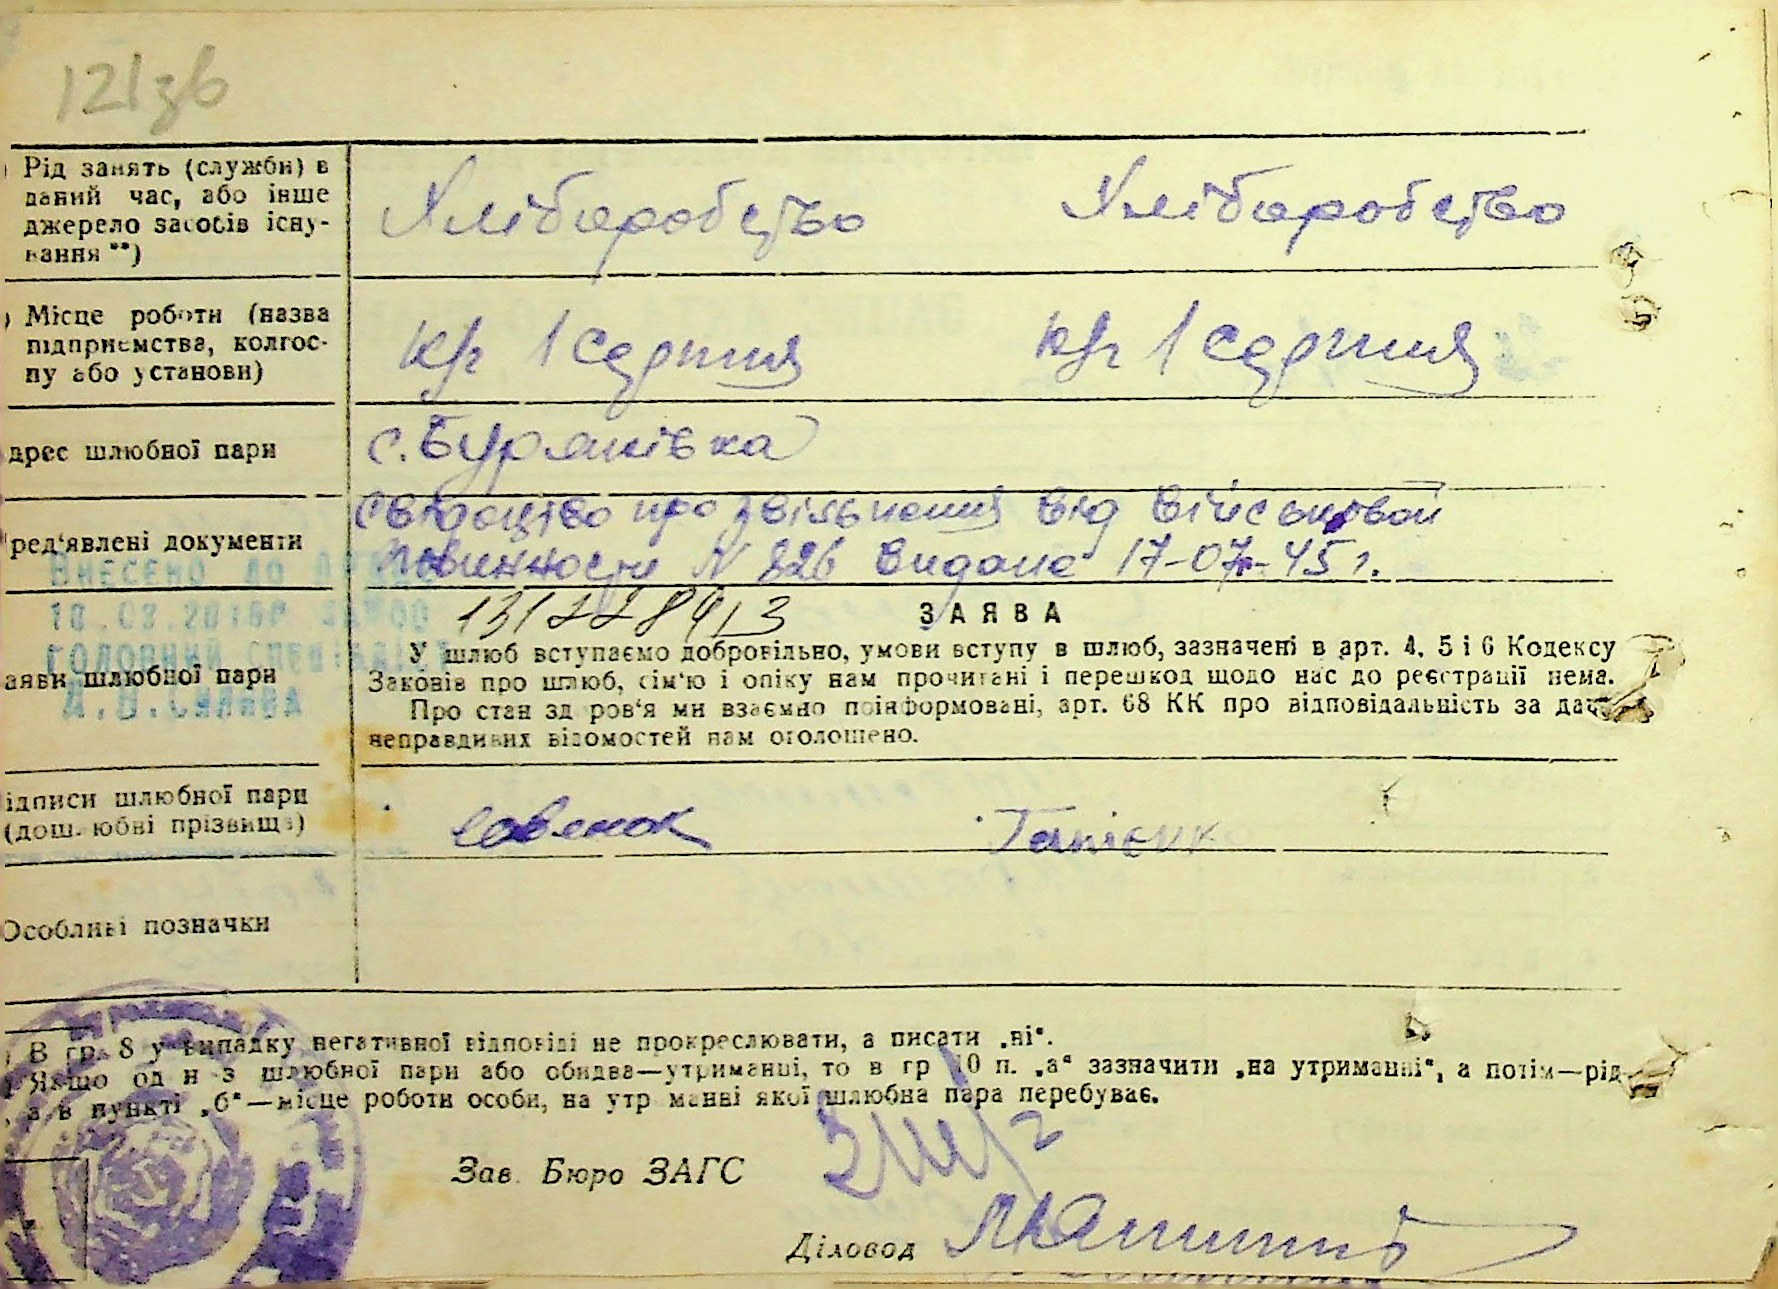 121зв
Рід занять (служби) в
даний час, або інше
джерело засобів існу-
вання **)
Хліборобство Хліборобство
Місце роботи (назва
підприємства, колгос-
пу або установи)
к/г 1 Серпня к/г 1 Серпня
дрес шлюбної пари
с. Бурянівка
Свідоцтво про звільнення від військової
ред'явлені документи
повинности N 826 видане 17-07-45 г.
Внесено до
ЗАЯВА
У шлюб вступаємо добровільно, умови вступу в шлюб, зазначені в арт. 4, 5 і 6 Кодексу
аяви шлюбної пари
Законів про шлюб, сім'ю і опіку нам прочитані і перешкод щодо нас до реєстрації нема.
Про стан здоров'я ми взаємно поінформовані, арт. 68 КК про відповідальність за дач
неправдивих відомостей нам оголошено.
ідписи шлюбної пари
(дошлюбні прізвища)
Совенок Гапієнк
Особливі позначки
В гр. 8 у випадку негативної відповіді не прокреслювати, а писати „ні“.
Якщо один з шлюбної пари або обидва—утриманці, то в гр 10 п. „а“ зазначити „на утриманні“, а потім—рід
а в пункті „б“—місце роботи особи, на утриманні якої шлюбна пара перебуває.
Зав. Бюро ЗАГС
Діловод